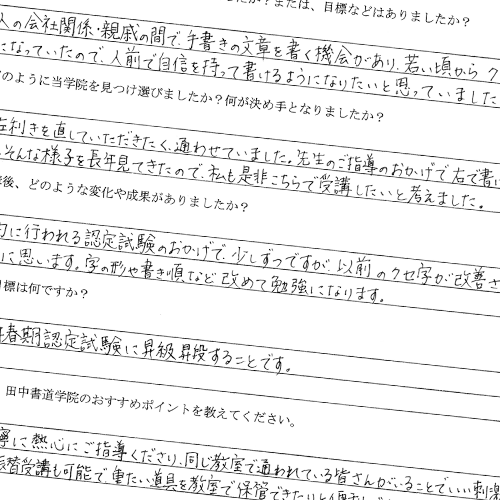 か？または、目標などはありましたか？
人の会社関係・親戚の間で、手書きの文章を書く機会があり、若い頃からク
になっていたので、人前で自信を持って書けるようになりたいと思っていました
のように当学院を見つけ選びましたか？何が決め手となりましたか？
左利きを直していただきたく、通わせていました。先生のご指導のおかげで右で書け
そんな様子を長年見てきたので、私も是非こちらで受講したいと考えました。
後、どのような変化や成果がありましたか？
に行われる認定試験のおかげで、少しずつですが、以前のクセ字が改善さ
に思います。字の形や書き順など改めて勉強になります。
目標は何ですか？
春期認定試験に昇級昇段することです。
田中書道学院のおすすめポイントを教えてください。
寧に熱心にご指導くださり、同じ教室で通われている皆さんがいることでいい刺激
振替受講も可能で重たい道具を教室で保管できたりと